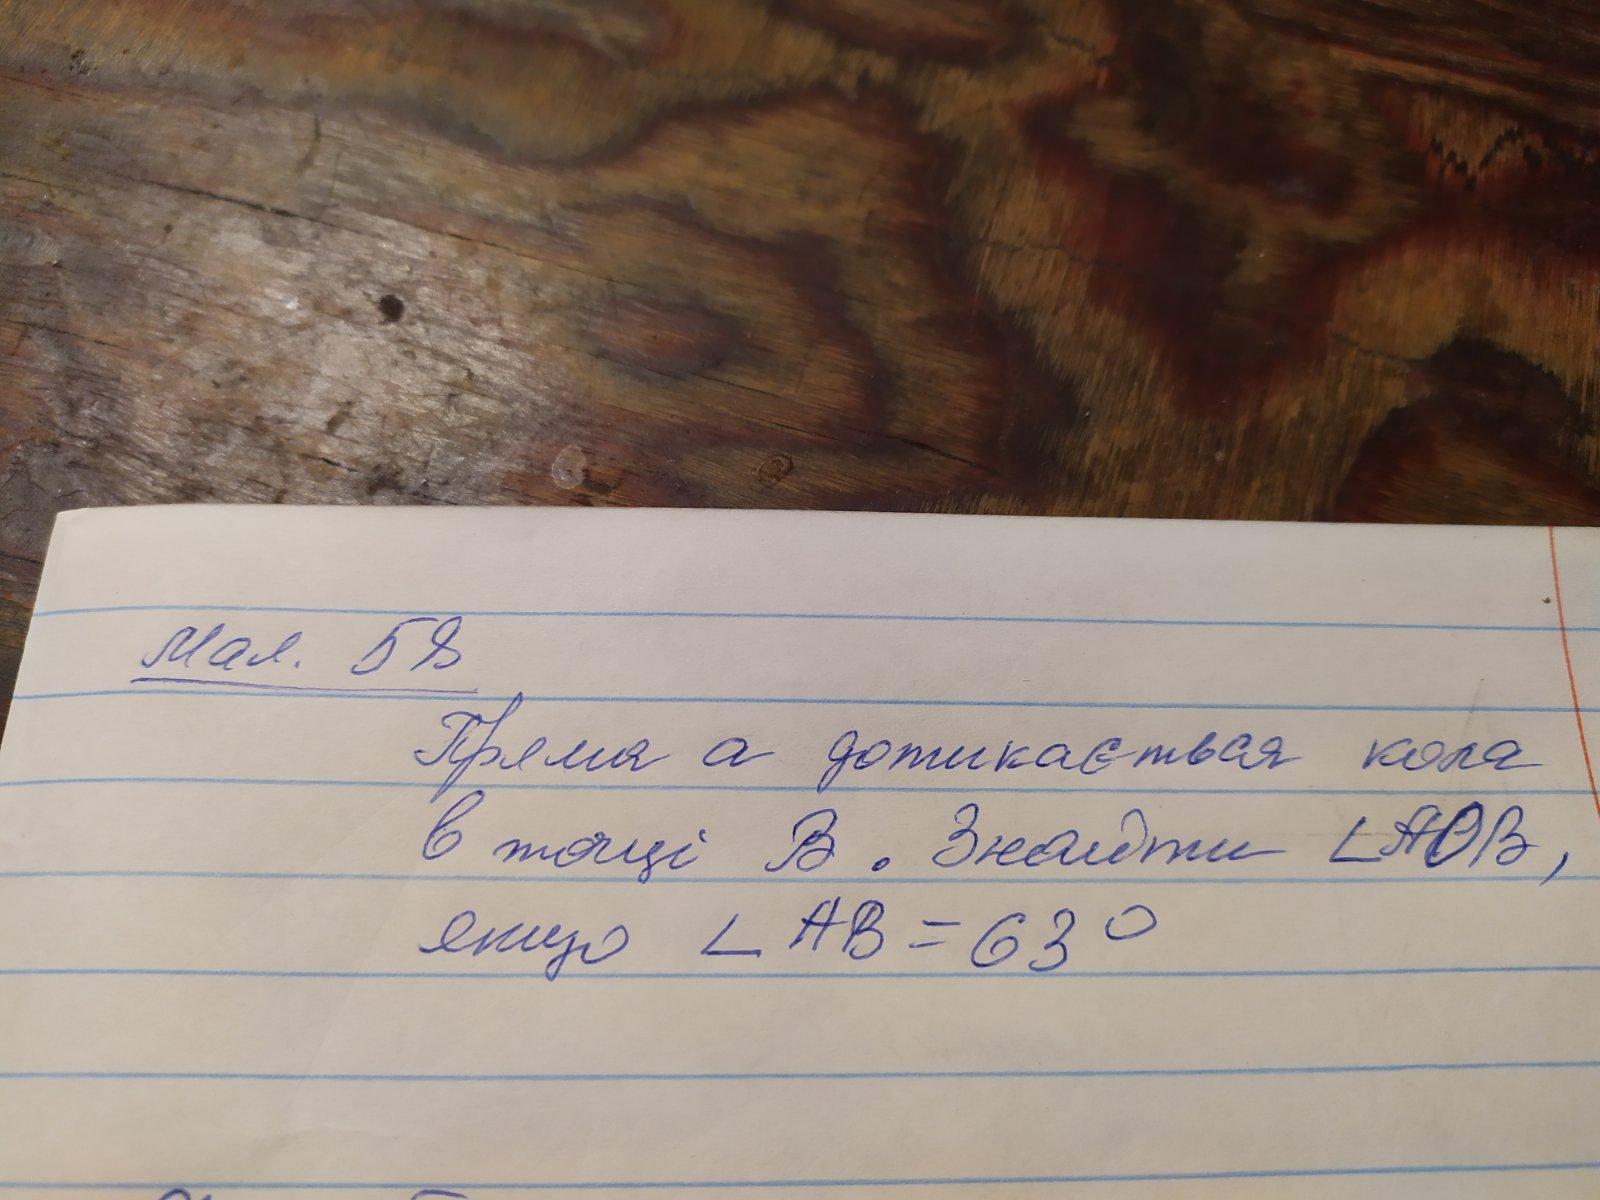 Мал. 58
Пряма а дотикається кола
в точці В. Знайти ∠АОВ,
якщо ∠АВ = 63°